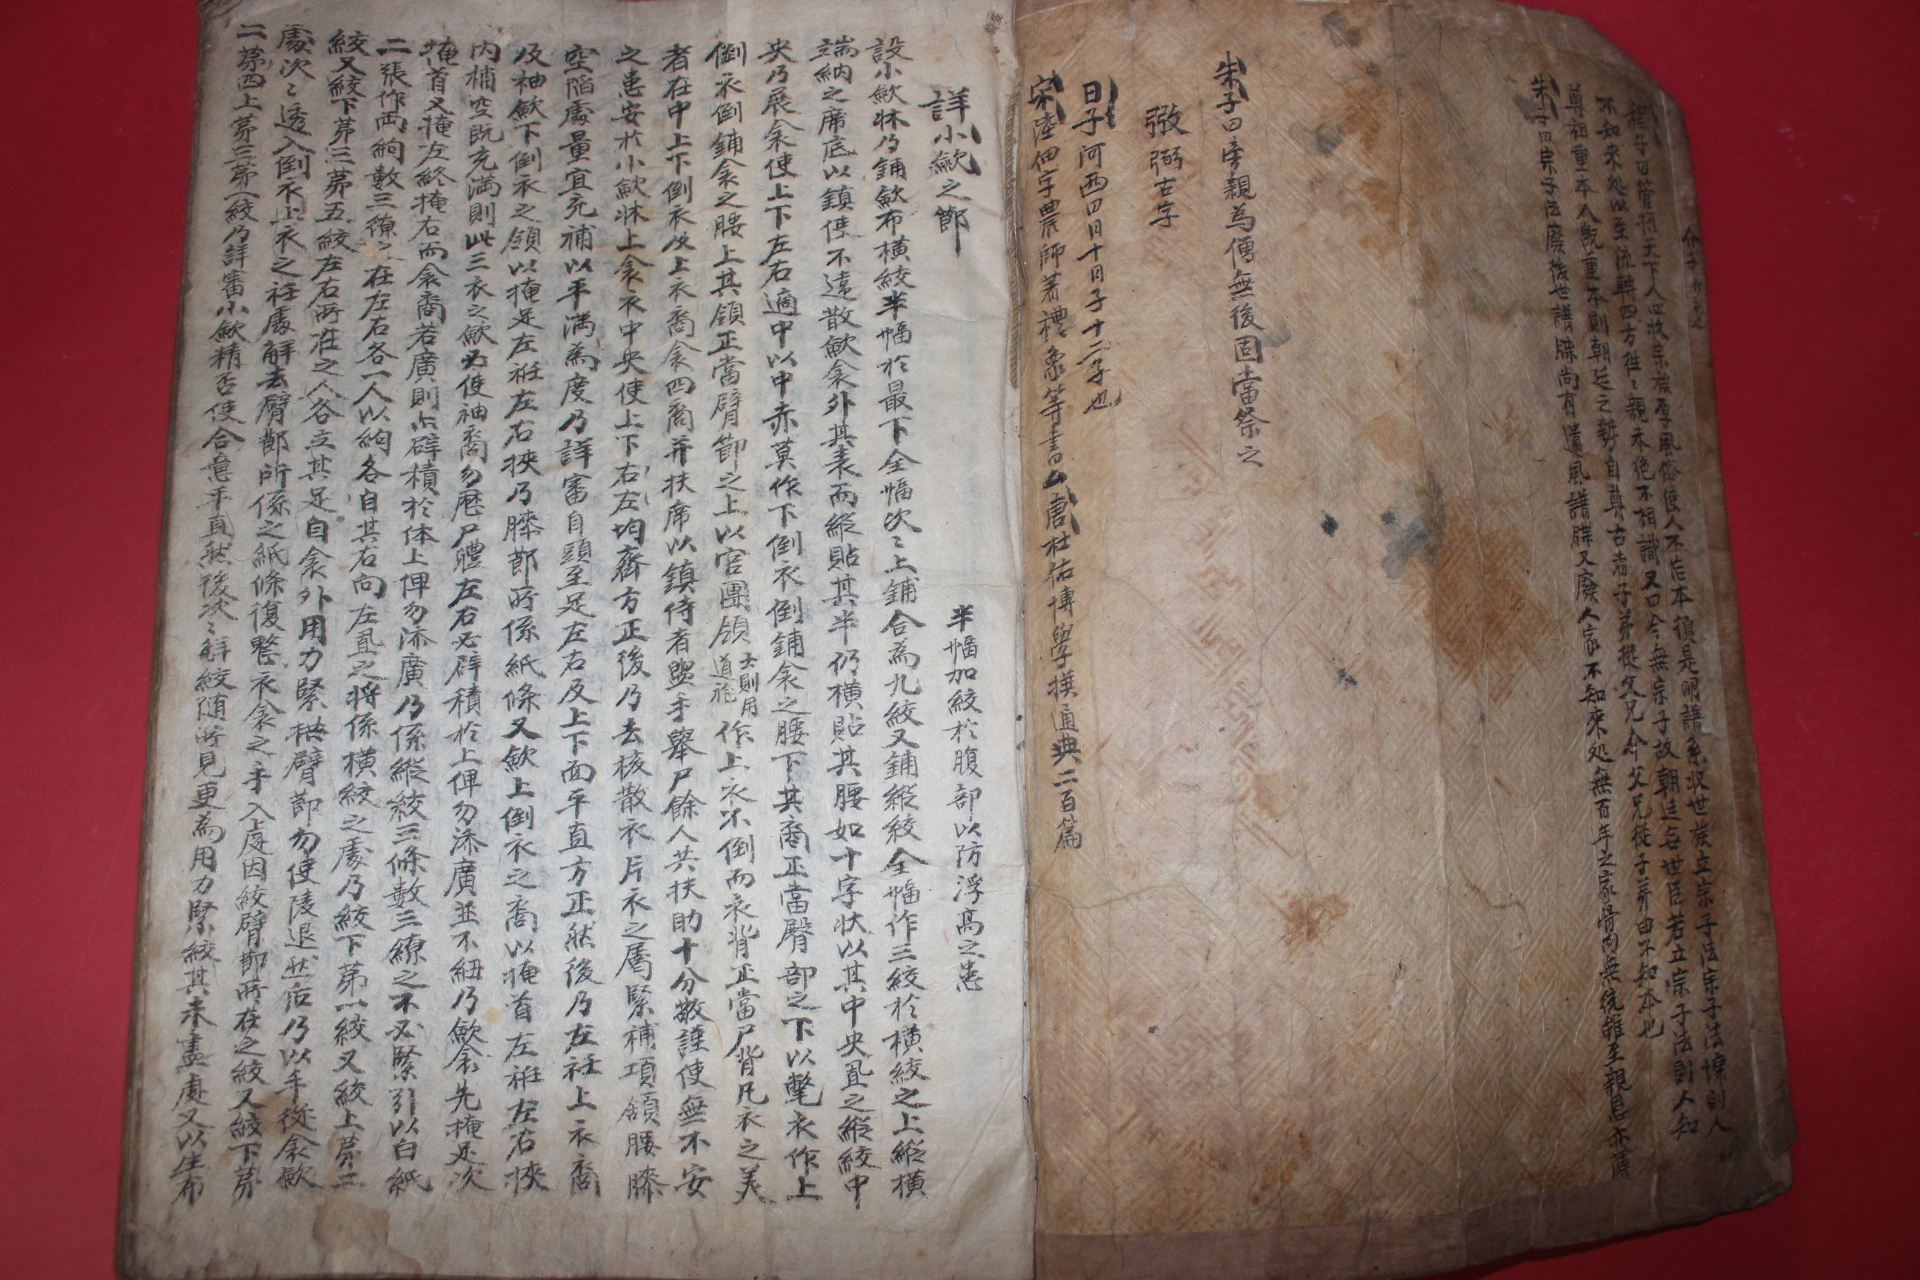 介子
程子曰管攝天下人心收宗族厚風俗使人不忘本須是明譜系收世族立宗子法宗子法壞則人
不知來処以至流轉四方往〻親未絶不相識又曰今無宗子故朝廷無世臣若立宗子法則人知
尊祖重本人既重本則朝廷之勢自尊古者子弟從父兄今父兄從子弟由不知本也
朱子曰宗子法廢後世譜牒尚有遺風譜牒又廢人家不知來処無百年之家骨肉無統雖至親恩亦薄
朱子曰旁親為僧無後固當祭之
弜弼古字
日子河西四日十日子十二子也
宋陸佃字農師著禮象等書 唐杜佑博學撰通典二百篇
半幅加絞於腹部以防浮高之患
詳小斂之節
設小斂牀乃鋪斂布橫絞半幅於最下全幅次〻上鋪合為九絞又鋪縱絞全幅作三絞於橫絞之上縱橫
端納之席底以鎮使不遠散斂衾外其表而縱貼其半仍橫貼其腰如十字狀以其中央直之縱絞中
央乃展衾使上下左右適中以中赤莫作下倒衣倒鋪衾之腰下其裔正當臀部之下以氅衣作上
倒衣倒鋪衾之腰上其領正當臂節之上以官團領士則用道袍作上衣不倒而衣背正當尸背凡衣之美
者在中上下倒衣次上衣裔衾四裔并扶席以鎮侍者盥手舉尸餘人共扶助十分敬謹使無不安
之患安於小斂牀上衾衣中央使上下右左均齊方正後乃去核散衣片衣之屬緊補項頷腰膝
空陷處量宜充補以平滿為度乃詳審自頭至足左右及上下面平直方正然後乃左衽上衣裔
及袖斂下倒衣之領以掩足左衽左右挾乃膝節所係紙條又斂上倒衣之裔以掩首左衽左右挾
内補空既充滿則此三衣之斂必使袖裔勿壓尸體左右必辟積於上俾勿添廣並不紐乃斂衾先掩足次
掩首又掩左終掩右而衾裔若廣則亦辟積於体上俾勿添廣乃係縱絞三條數三繚之不必緊引以白紙
二張作両絇數三繚之在左右各一人以絇各自其右向左直之將係橫絞之處乃絞下第一絞又絞上第二
絞又絞下第三第五絞左右所在之人各立其足自衾外用力緊拱臂節勿使陵退然后乃以手從衾斂
處次〻透入倒衣上衣之衽處解去臂節所係之紙條復整衣衾之手入處因絞臂節所在之絞又絞下第
二第四上第三第一絞乃詳審小斂精否使合意平直然後次〻解絞随所見更為用力緊絞其未盡處又以生布